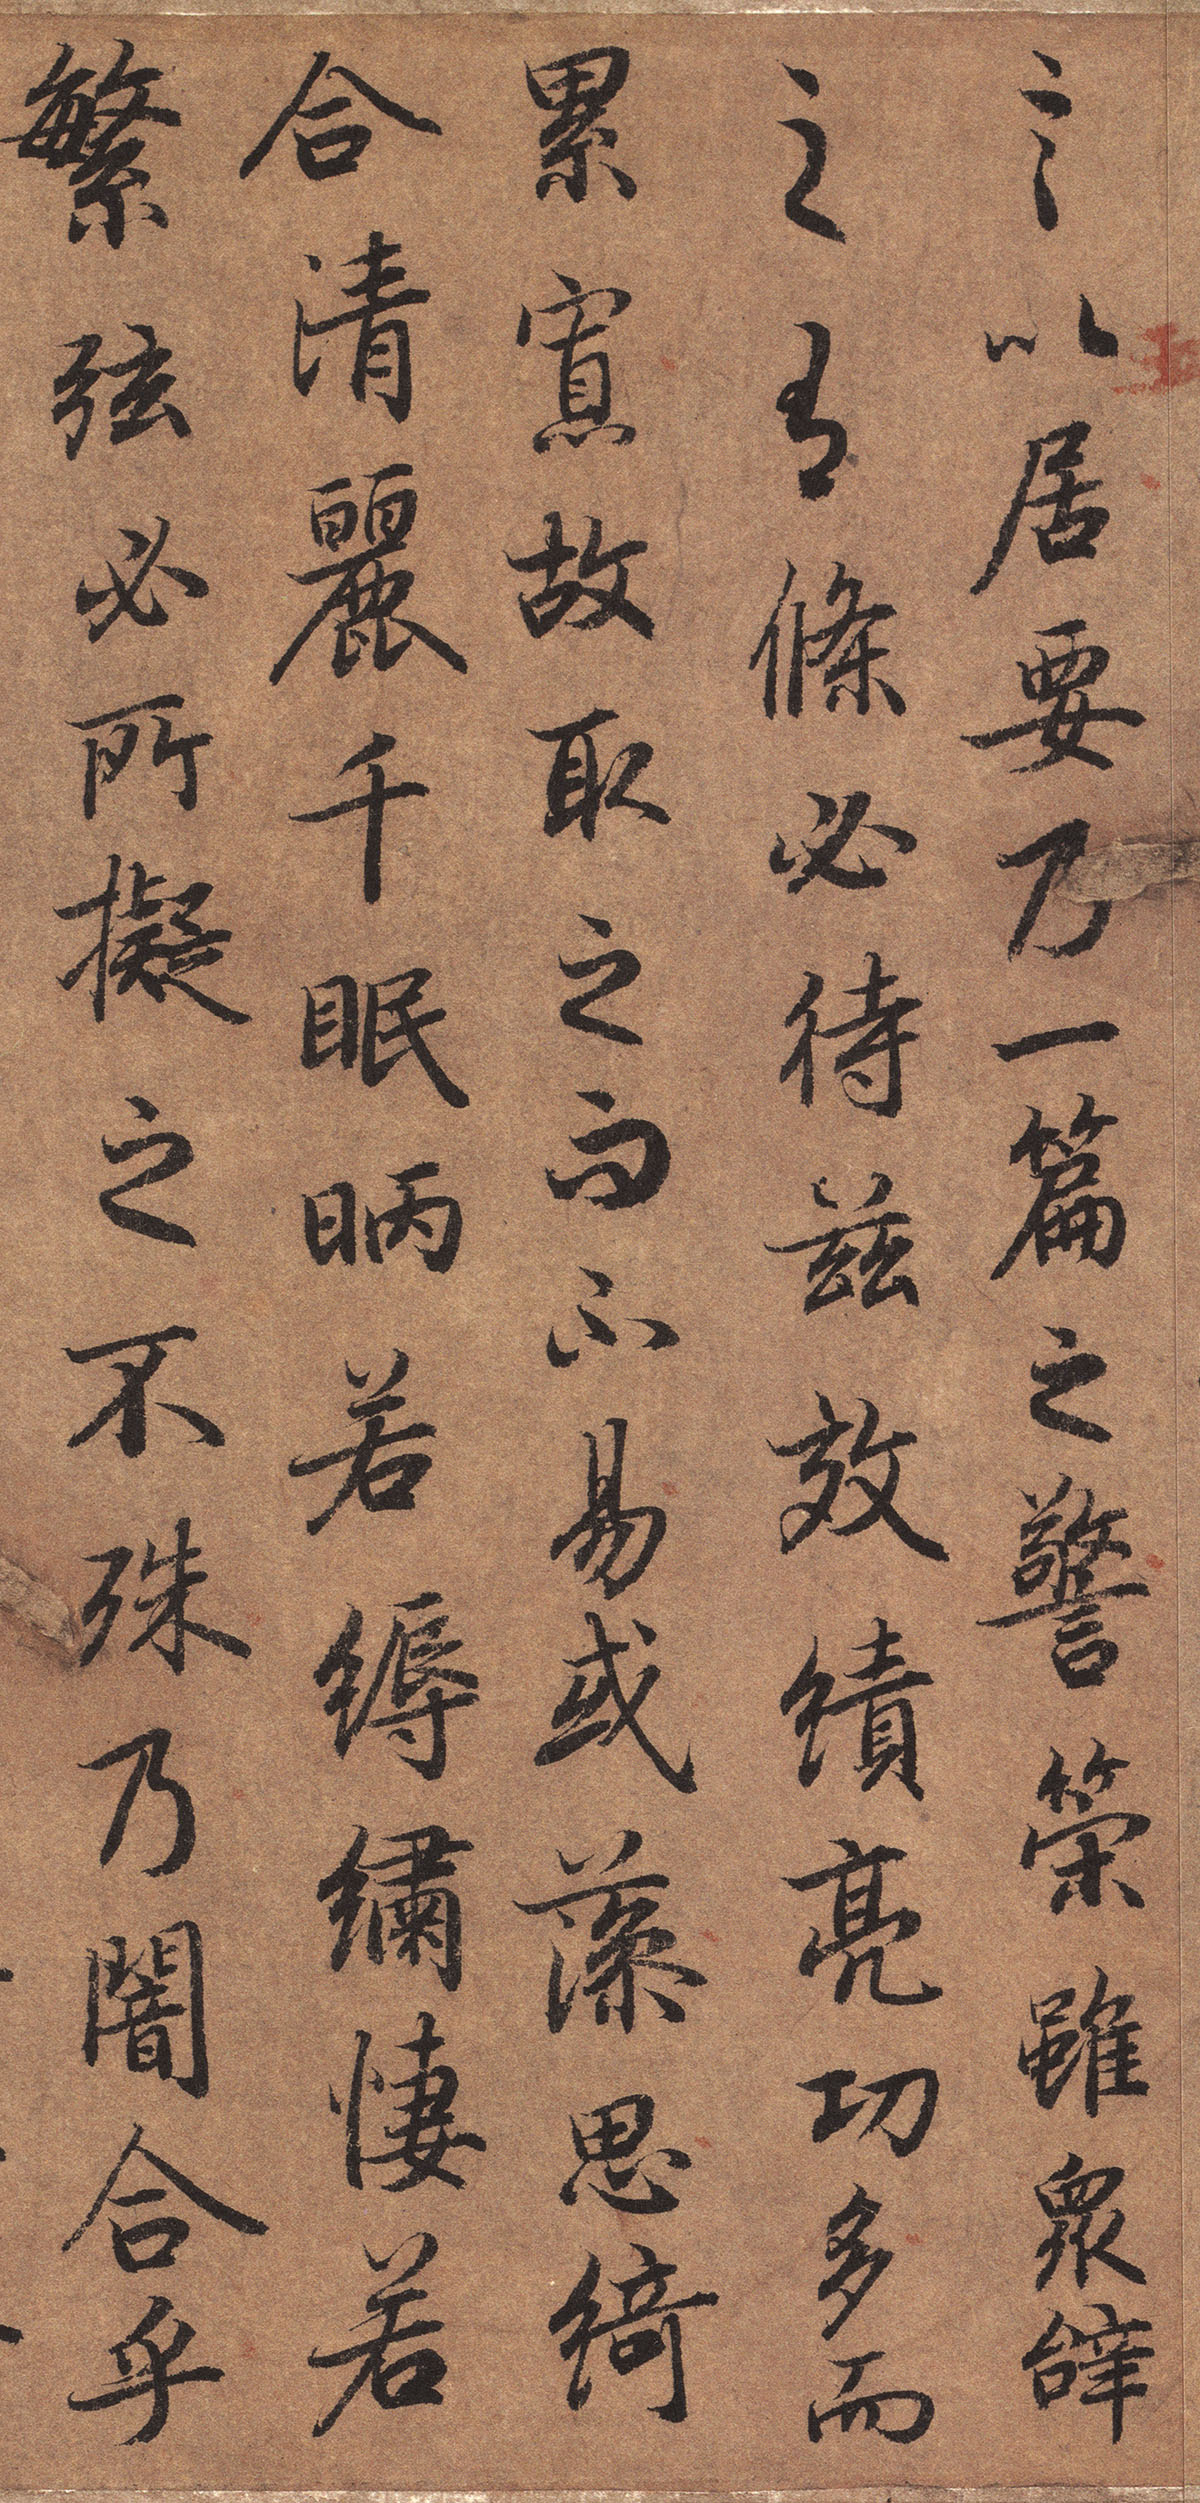 言以居要乃一篇之警策雖衆辝
之有條必待茲效績亮功多而
累寡故取之而不易或藻思綺
合清麗千眠昞若縟繡悽若
繁弦必所擬之不殊乃闇合乎